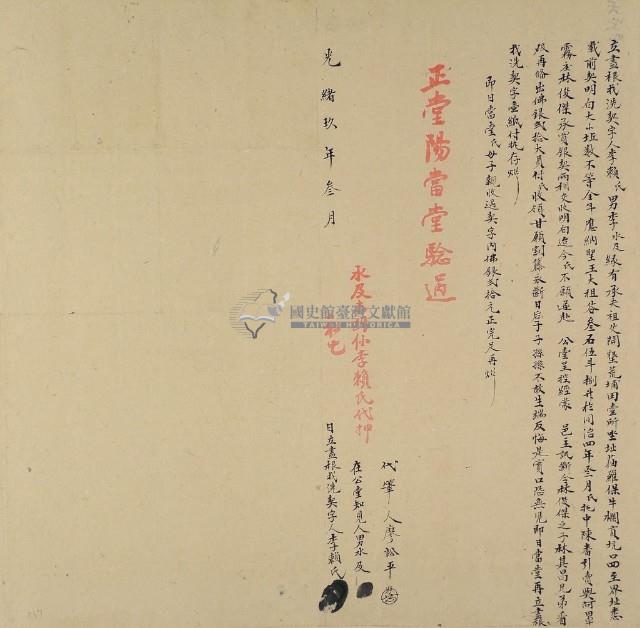 立盡根找洗契字人李賴氏男李水及緣有承夫祖父開墾荒埔田壹所坐址葫蘆保牛欄貢坑口四至界址悉
載前契明白大小坵數不等全年應納聖王大租谷叁石伍斗捌升於同治四年叁月氏托中陳番引賣與阿罩
霧庄林俊傑承買銀契兩相交收明白迨今氏不願遽赴 公堂呈控經蒙 邑主訊斷令林俊傑之子林其昌兄弟看
破再備出佛銀貳拾大員付氏收領甘願割藤永斷日后子子孫孫不敢生端反悔是實口恐無憑即日當堂再立盡根
找洗契字壹紙付執存炤
即日當堂氏母子親收過契字內佛銀貳拾元正完足再炤
正堂陽當堂驗過
代筆人廖松平
在公堂知見人男水及
光緒玖年叁月 日立盡根找洗契字人李賴氏
國史館臺灣文獻館
TAIWAN HISTORICA